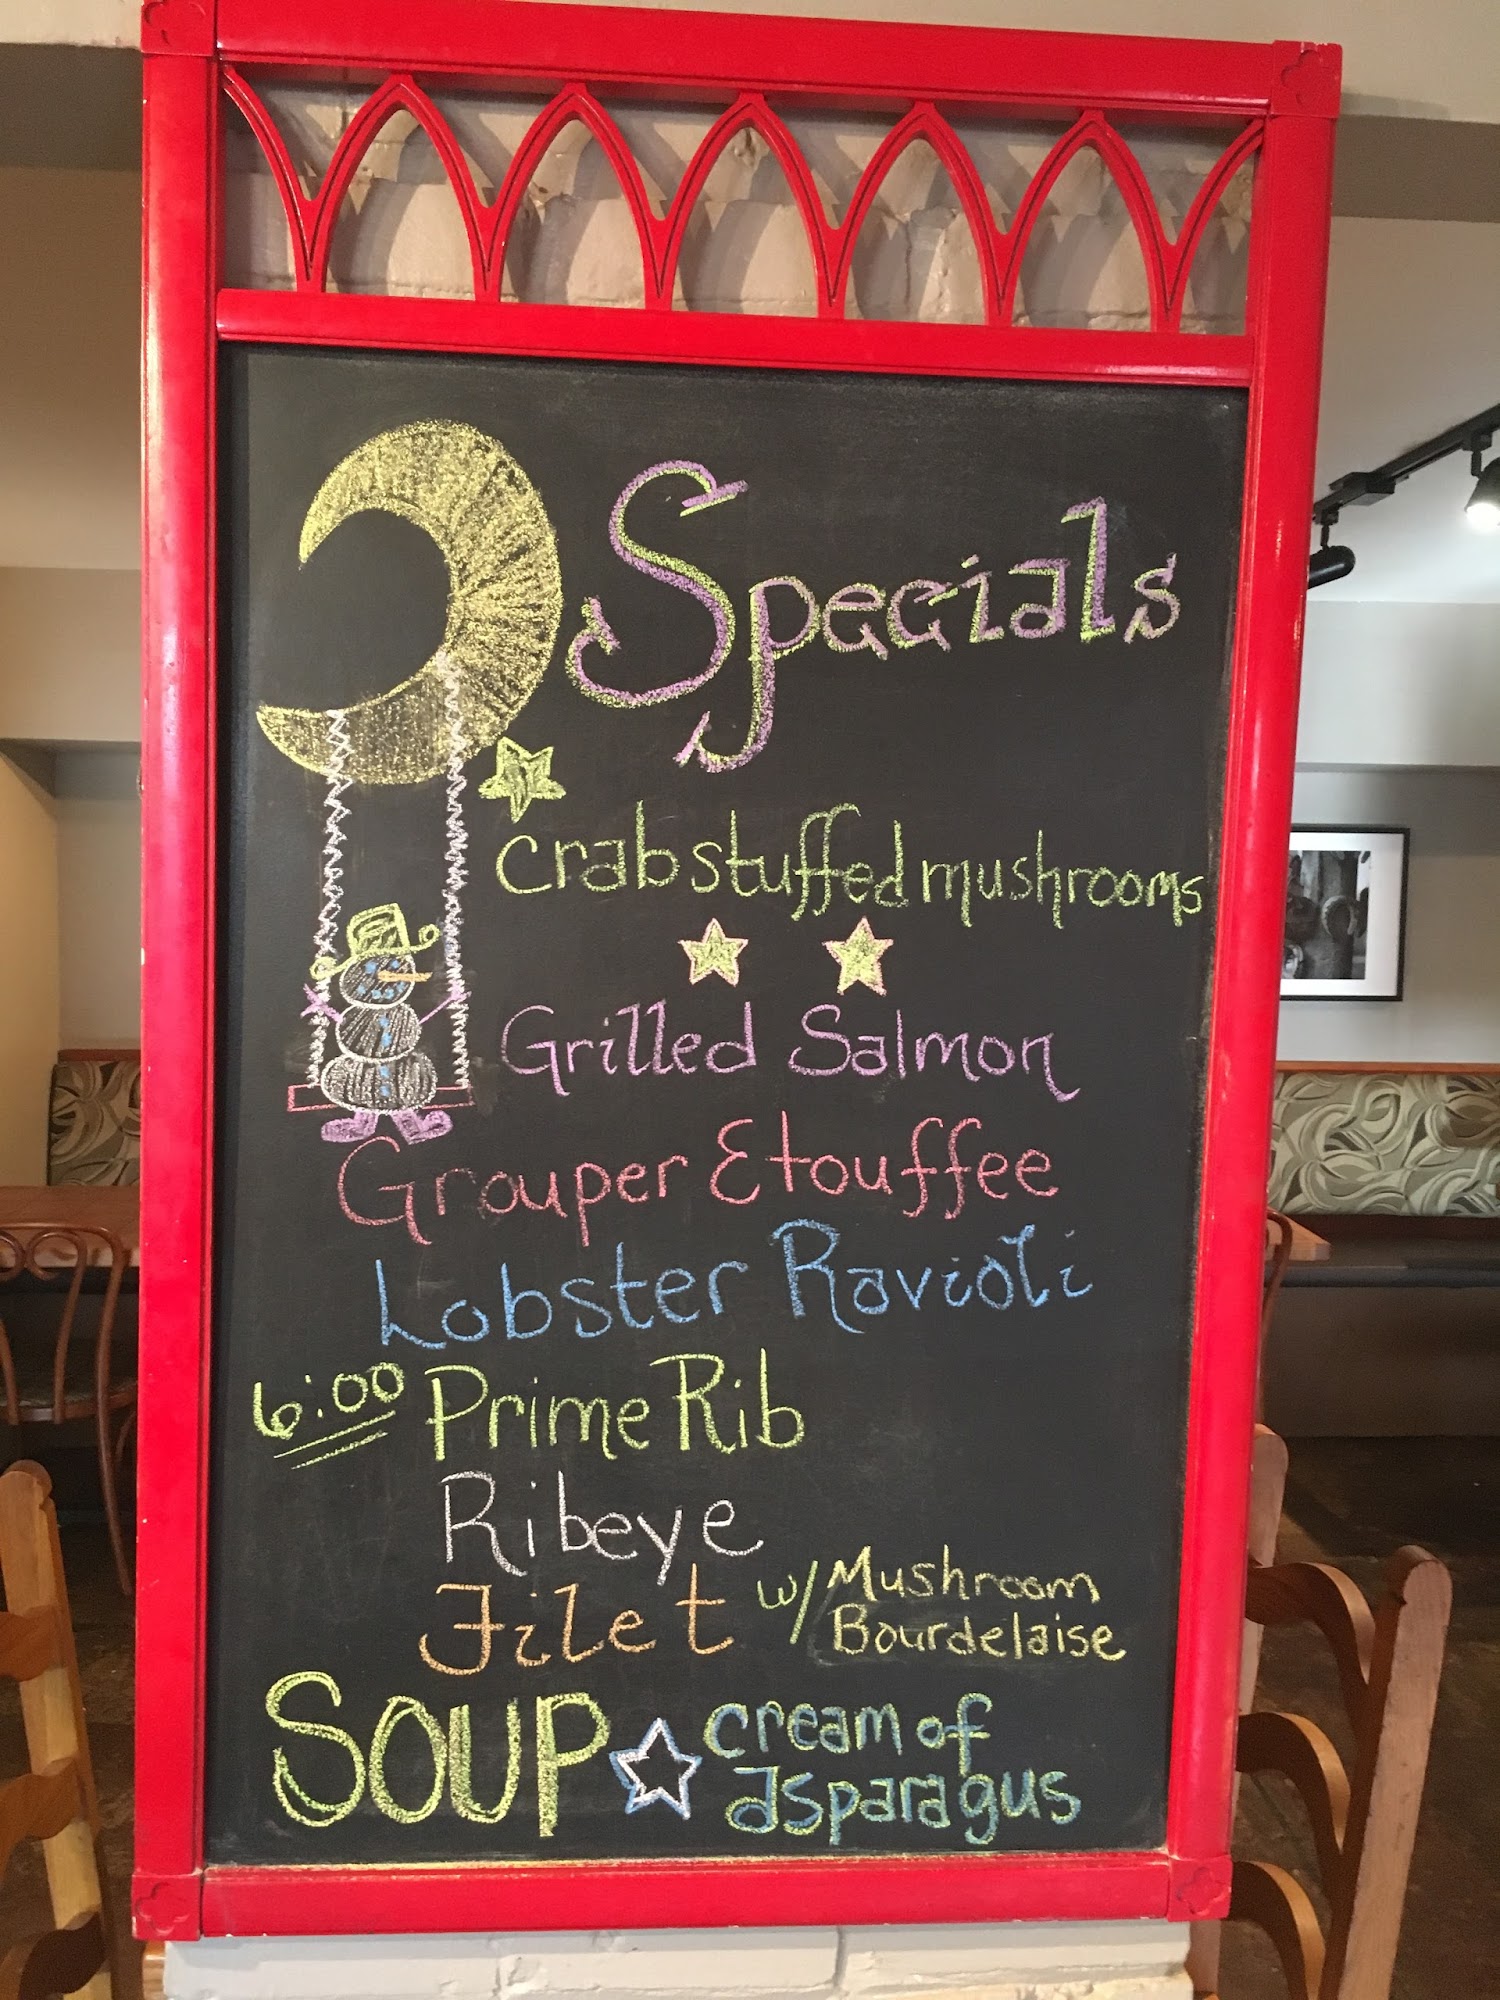 Specials
Crab stuffed mushrooms
Grilled Salmon
Grouper Etouffee
Lobster Ravioli
6:00 Prime Rib
Ribeye
Filet w/ Mushroom
Bourdelaise
SOUP cream of
asparagus